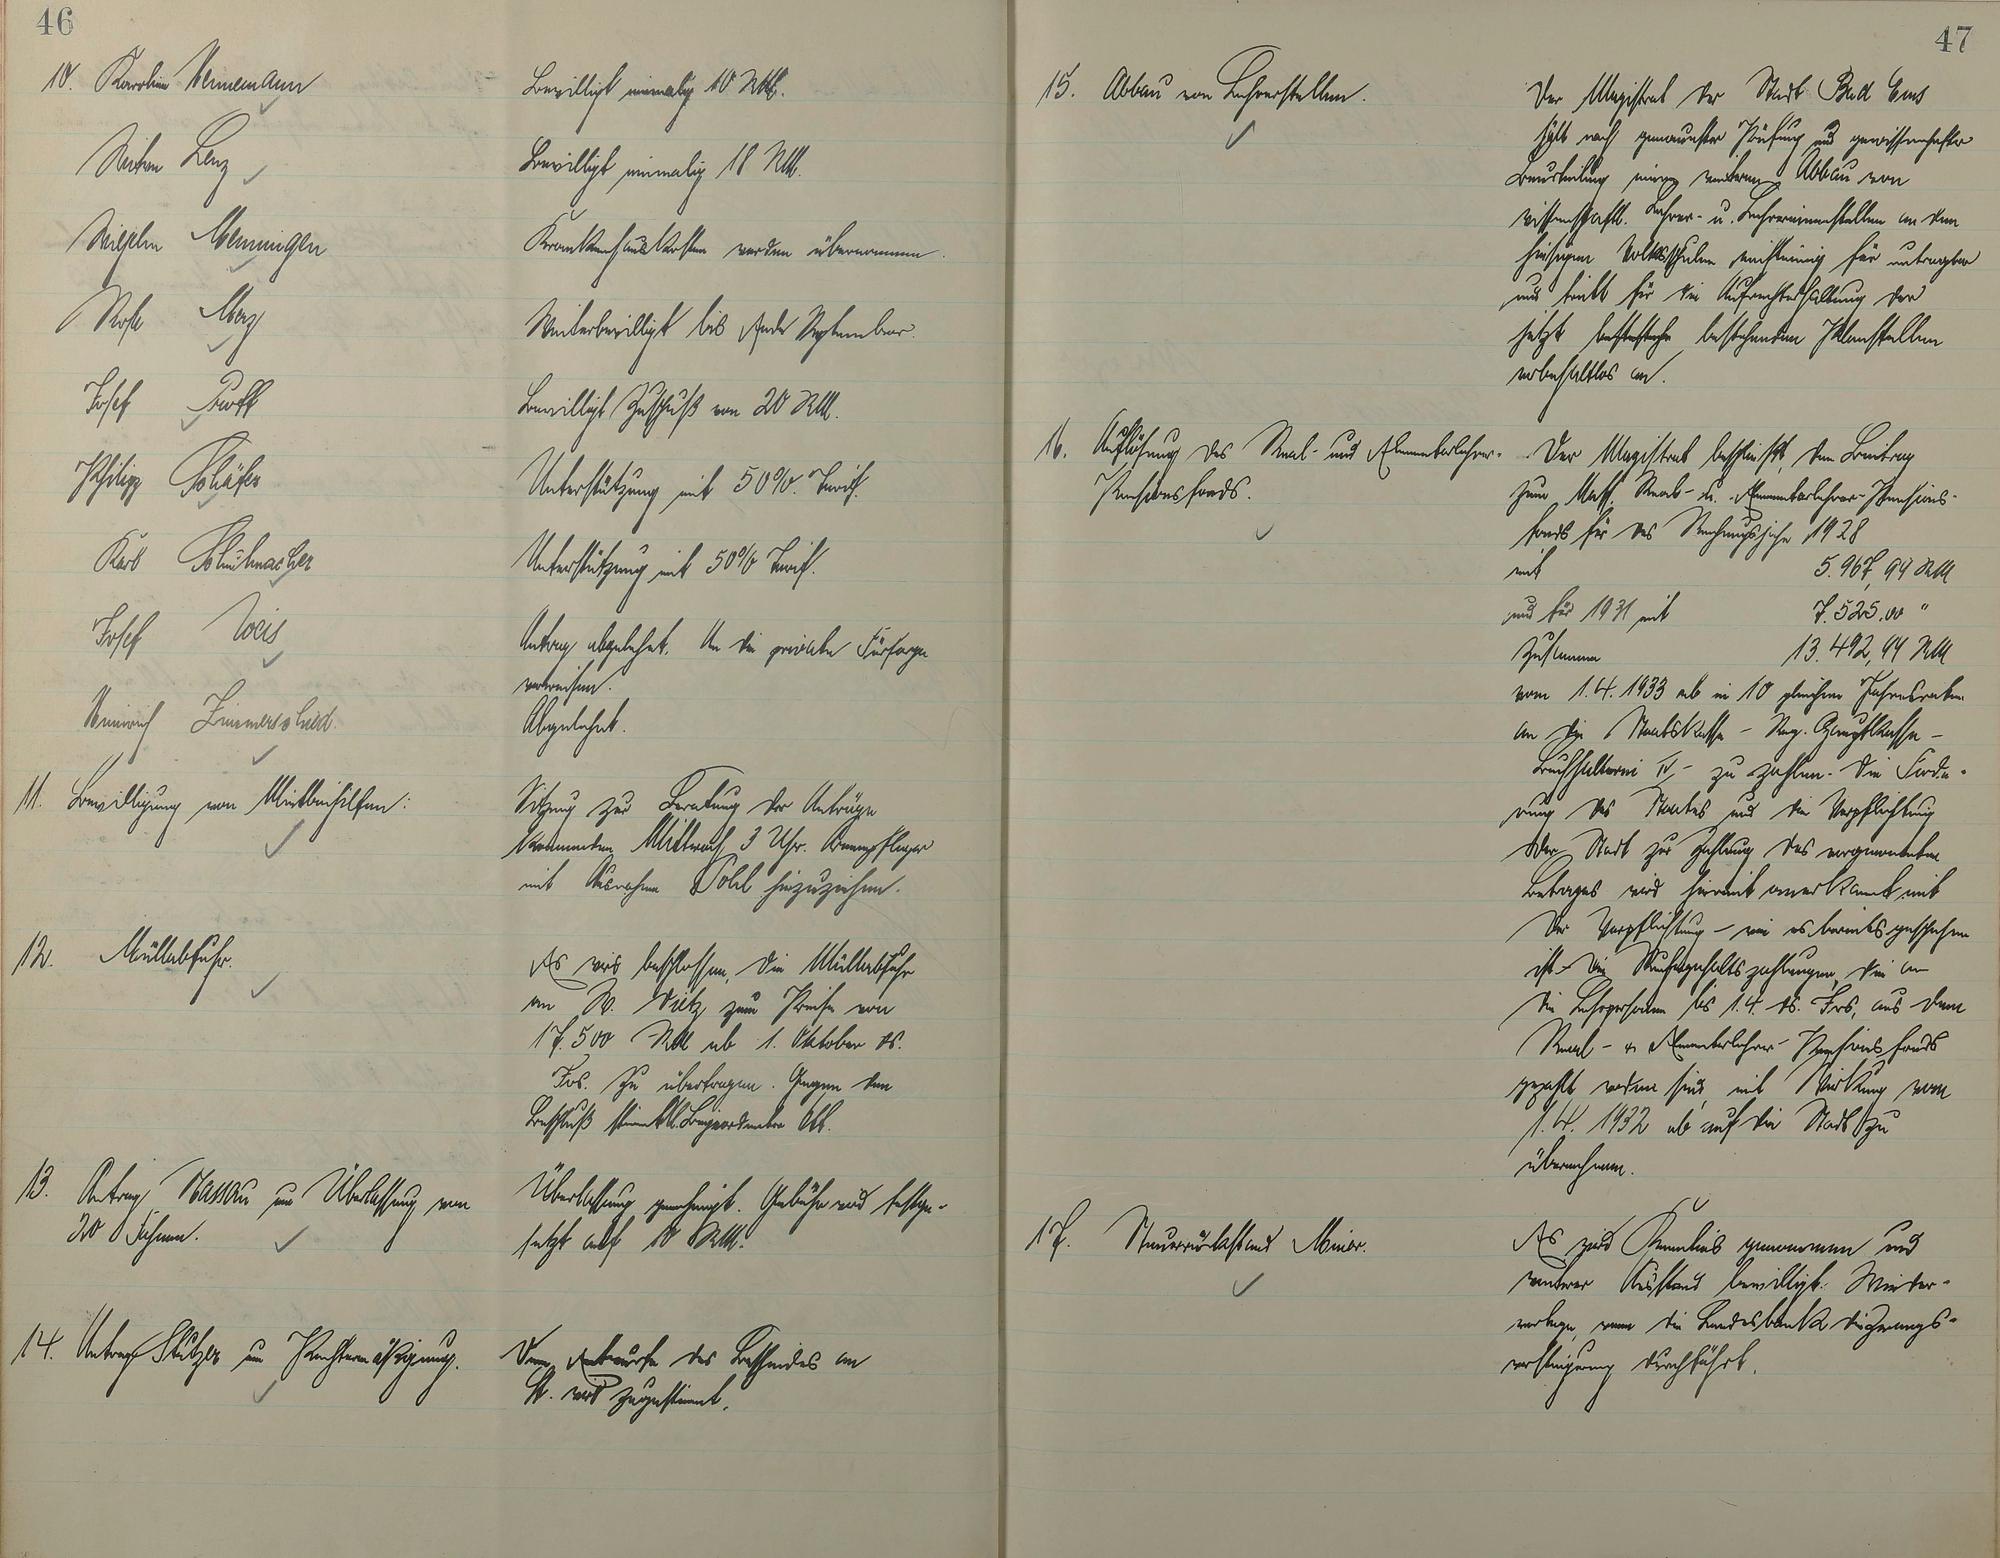 46
10. Karoline Heinemann
Bewilligt einmalig 10 RM.
Lenz
Bewilligt einmalig 18 RM.
Wilhelm Menningen
Krankenhauskosten werden übernommen.
Rosa Merz
Weiterbewilligt bis Ende September.
Josef Proff
Bewilligt Zuschuß von 20 RM.
Philipp Schäfer
Unterstützung mit 50%. Tarif.
Karl Schuhmacher
Unterstützung mit 50% Tarif.
Josef Weis
Antrag abgelehnt. An die private Fürsorge
verweisen.
Heinrich Zimmerschied
Abgelehnt.
11. Bewilligung von Mietbeihilfen:
Sitzung zur Beratung der Anträge
kommenden Mittwoch 3 Uhr. Armenpfleger
mit Ausnahme Pohl hinzuziehen.
12. Müllabfuhr.
Es wird beschlossen, die Müllabfuhr
an W. Dietz zum Preise von
17.500 RM ab 1. Oktober ds.
Jrs. zu übertragen. Gegen den
Beschluß stimmt Beigeordneter
13. Antrag Nassau um Überlassung von
20 Fahnen.
Überlassung genehmigt. Gebühr wird festge-
setzt auf 10 RM.
14. Antrag Stützer um Pachtermäßigung.
Dem Entwurfe des Bescheides an
St. wird zugestimmt.
47
15. Abbau von Lehrerstellen.
Der Magistrat der Stadt Bad Ems
hält nach genauester Prüfung und gewissenhafter
Beurteilung einen weiteren Abbau von
wissenschaftl. Lehrer- u. Lehrerinnenstellen an den
hiesigen Volksschulen einstimmig für untragbar
und tritt für die Aufrechterhaltung der
jetzt bestehenden Planstellen
vorbehaltlos ein.
16. Auflösung des Real- und Elementarlehrer-
Pensionsfonds.
Der Magistrat beschließt, den Beitrag
zum Nass. Real- u. Elementarlehrer-Pensions-
fonds für das Rechnungsjahr 1928
mit 5.967,94 RM
und für 1931 mit 7.525,00 "
zusammen 13.492,94 RM
vom 1.4.1933 ab in 10 gleichen Jahresraten
an die Staatskasse - Reg. Hauptkasse -
Buchhalterei IV - zu zahlen. Die Forde-
rung des Staates und die Verpflichtung
der Stadt zur Zahlung des vorgenannten
Betrages wird hiermit anerkannt mit
der Verpflichtung - wie es bereits geschehen
ist - die Ruhegehaltszahlungen, die an
die Lehrpersonen bis 1.4. ds. Jrs. aus dem
Real- u. Elementarlehrer-Pensionsfonds
gezahlt worden sind, mit Wirkung vom
1.4. 1932 ab auf die Stadt zu
übernehmen.
17. Steuerrückstand Meier.
Es wird Kenntnis genommen und
weiterer Ausstand bewilligt. Wieder-
vorlage, wenn die Landesbank die Zwangs-
versteigerung durchführt.